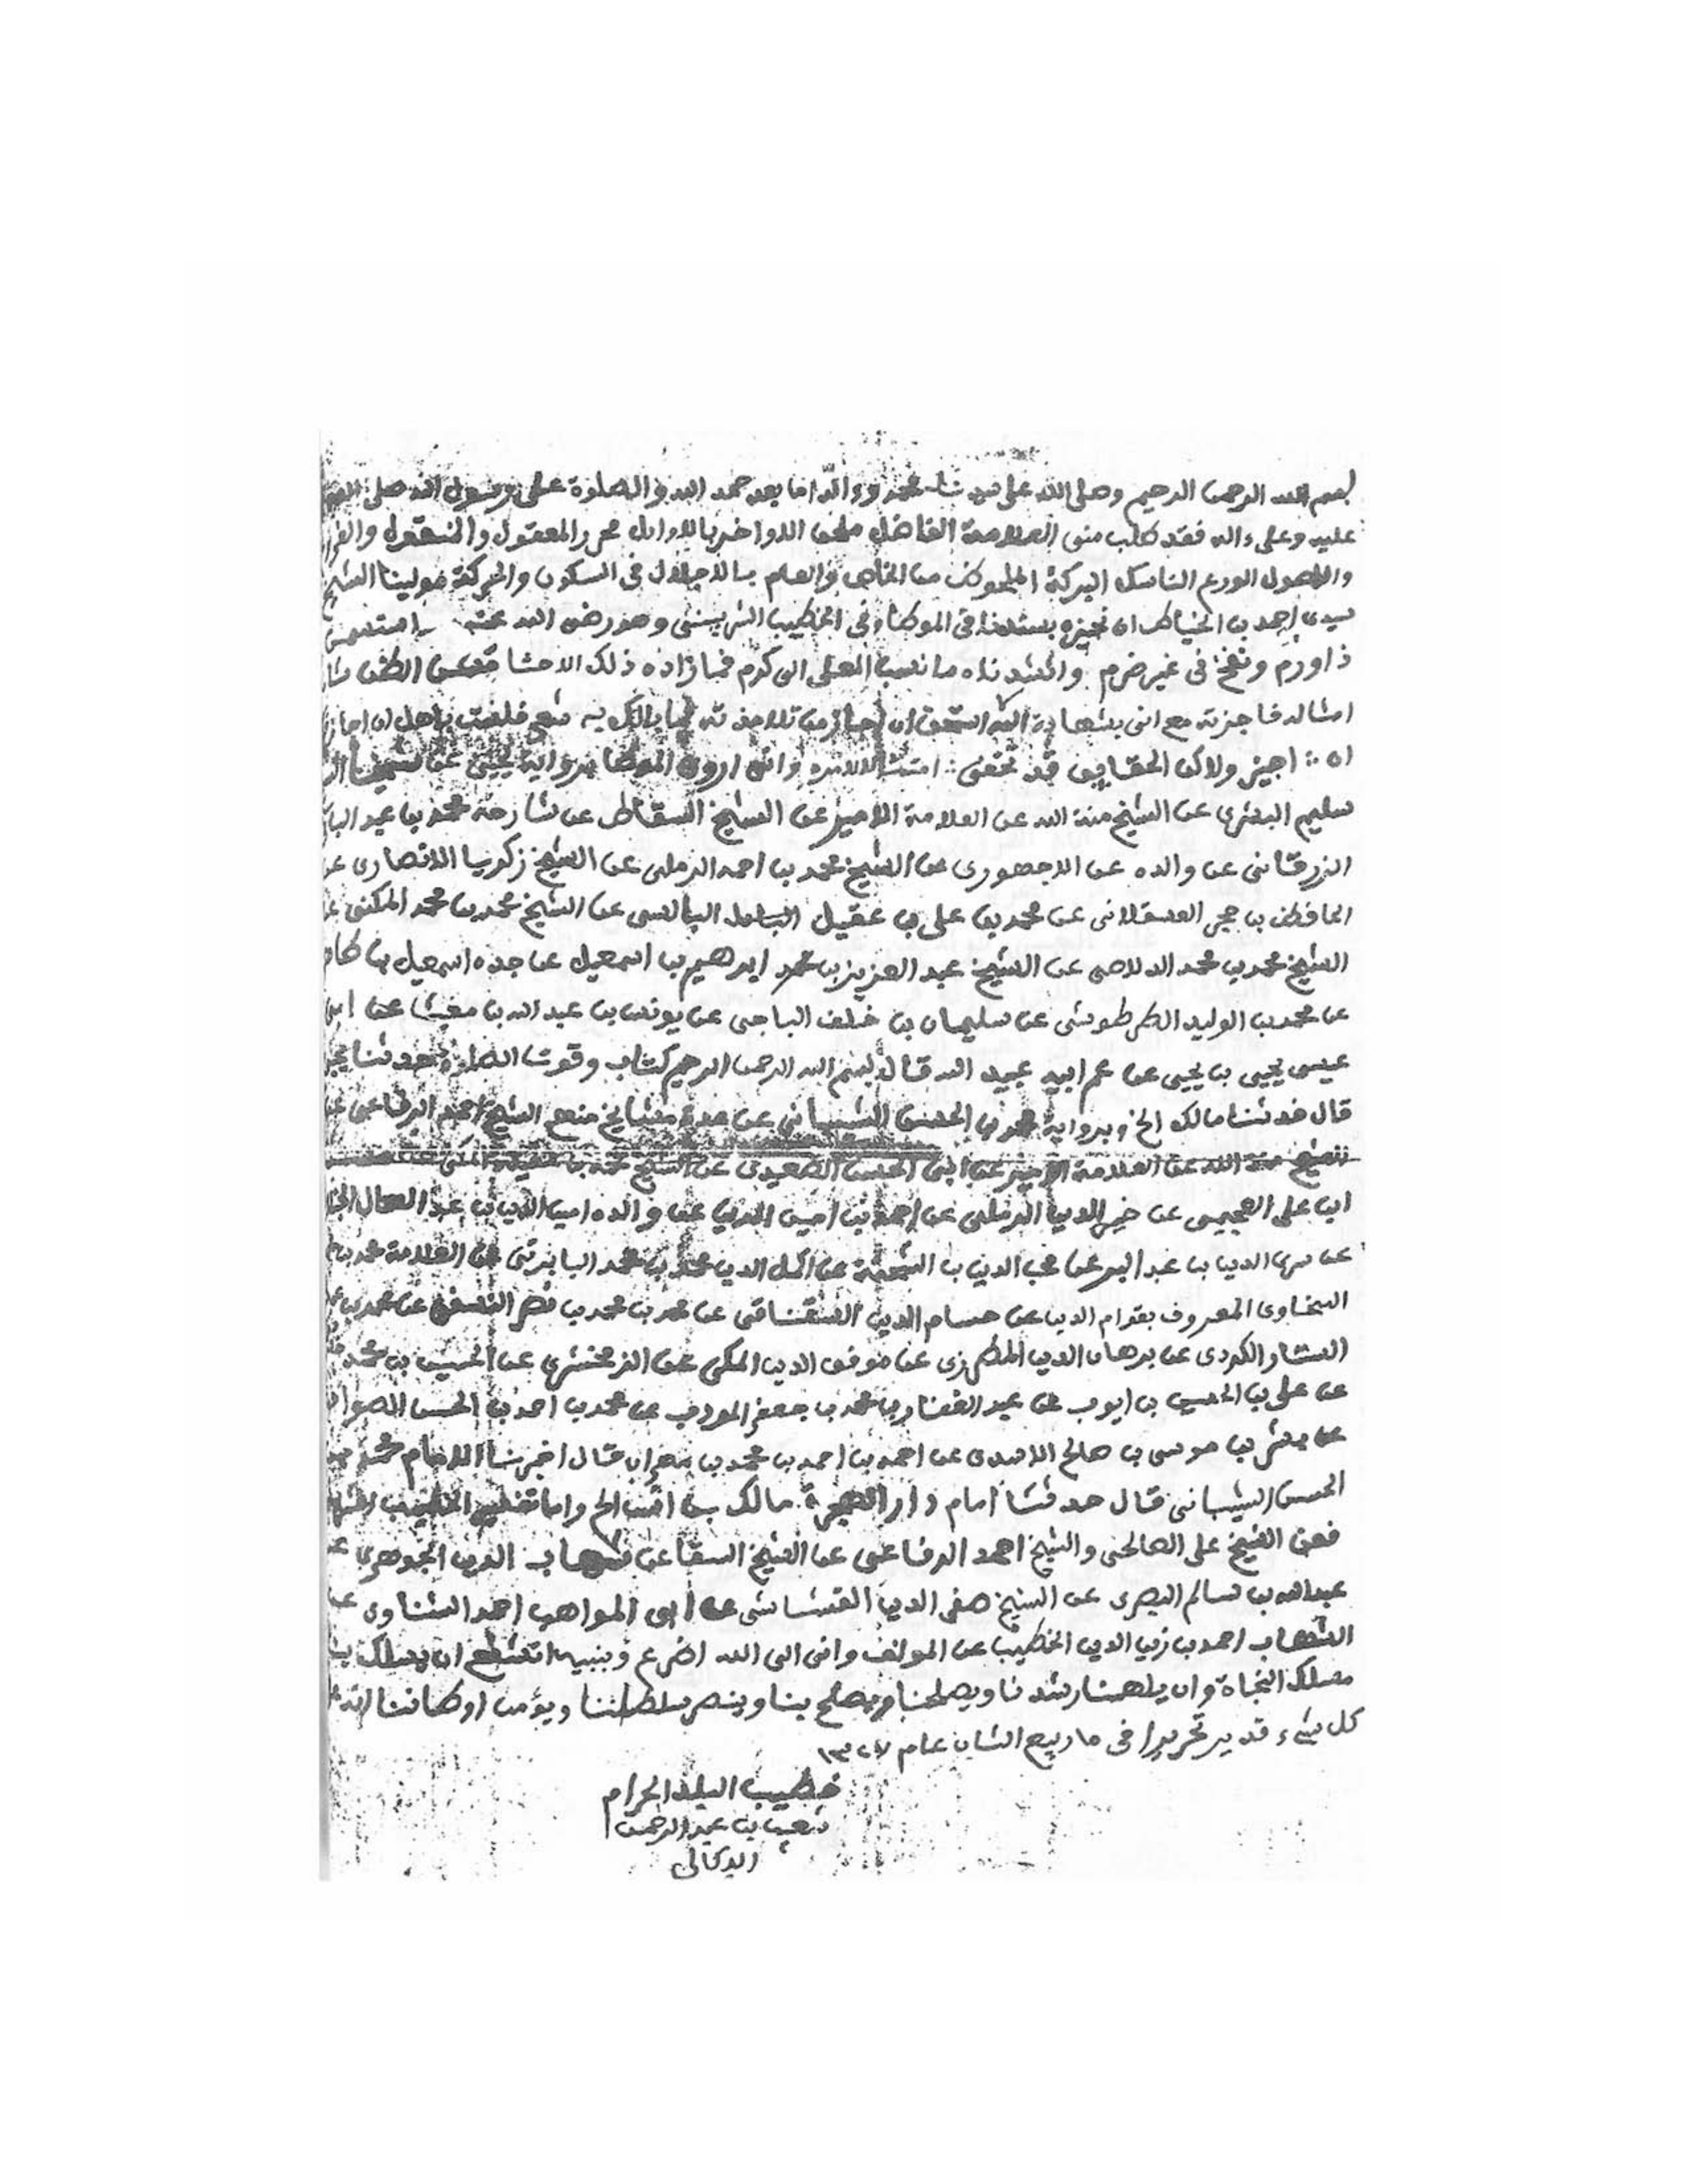 بسم الله الرحمن الرحيم وصلى الله على سيدنا محمد وءاله اما بعد حمد الله والصلوة على رسول الله صلى الله
عليه وعلى ءاله فقد طلب منى العلامة الفاضل ملحق الاواخر بالاوايل محرر المعقول والمنقول
والاصول الورع الناسك البركة الملحوظ من الخاص والعام بالاجلال فى السكون والحركة مولينا الشيخ
سيدى احمد بن الخياط ان نجيزه بسندنا فى الموطأ وفى الخطيب الشربينى وهو رضى الله عنه استسمن
ذا ورم ونفخ فى غير ضرم وانشدناه ما نسب المعلى الى كرم فما زاده ذلك الا حسن الظن
امثاله فاجزته مع انى بشهادة الله
ان اجيز ولاكن الحقايق قد تخفى امتثالا لامره وانى اروى الموطأ برواية يحيى عن
سليم البشرى عن الشيخ منة الله عن العلامة الامير عن الشيخ السقاط عن شارحه محمد بن عبد
الزرقانى عن والده عن الاجهورى عن الشيخ محمد بن احمد الرملى عن الشيخ زكريا الانصارى عن
الحافظ بن حجر العسقلانى عن محمد بن على بن عقيل البالسى عن الشيخ محمد بن محمد المكنى
الشيخ محمد بن محمد الدلاصى عن الشيخ عبد العزيز بن ابرهيم بن اسمعيل عن جده اسمعيل بن
عن محمد بن الوليد الطرطوشى عن سليمان بن خلف الباجى عن يونس بن عبد الله بن مغيث عن ابى
عيسى يحيى بن يحيى عن عم ابيه عبيد الله قال بسم الله الرحمن الرحيم كتاب وقوت الصلوة حدثنا
قال حدثنا مالك الخ وبرواية محمد بن الحسن الشيبانى عن عدة مشايخ منهم الشيخ احمد الرفاعى عن
الشيخ منة الله عن العلامة الامير عن ابى الحسن الصعيدى عن الشيخ محمد بن عقيلة المكى
ابن على العجيمى عن خير الدين الرملى عن احمد بن امين الدين عن والده امين الدين بن عبد العال
عن سرى الدين بن عبد البر عن محب الدين بن الشحنة عن اكمل الدين محمد بن محمد البابرتى عن العلامة محمد بن
السخاوى المعروف بقوام الدين عن حسام الدين السقناقى عن محمد بن محمد بن نصر النسفى عن محمد بن
الستار الكردى عن برهان الدين المطرزى عن موفق الدين المكى عن الزمخشرى عن الحسين بن محمد
عن على بن الحسين بن ايوب عن عبد الغفار بن محمد بن جعفر المودب عن محمد بن احمد بن الحسن الصواف
عن بشر بن موسى بن صالح الاسدى عن احمد بن احمد بن محمد بن مهران قال اخبرنا الامام محمد بن
الحسن الشيبانى قال حدثنا امام دار الهجرة مالك بن انس الخ واما تفسير الخطيب
فعن الشيخ على الصالحى والشيخ احمد الرفاعى عن الشيخ السقا عن شهاب الدين الجوهرى عن
عبد الله بن سالم البصرى عن الشيخ صفى الدين القشاشى عن ابى المواهب احمد الشناوى عن
الشهاب احمد بن زين الدين الخطيب عن المولف وانى الى الله اضرع وبنبيه اتشفع ان يسلك بنا
مسلك النجاة وان يلهمنا رشدنا ويصلحنا ويصلح بنا وينصر سلطاننا ويؤمن اوطاننا
كل شىء قدير تحريرا فى ربيع الثان عام ١٣٢٧
خطيب البلد الحرام
شعيب بن عبد الرحمن
الدكالى